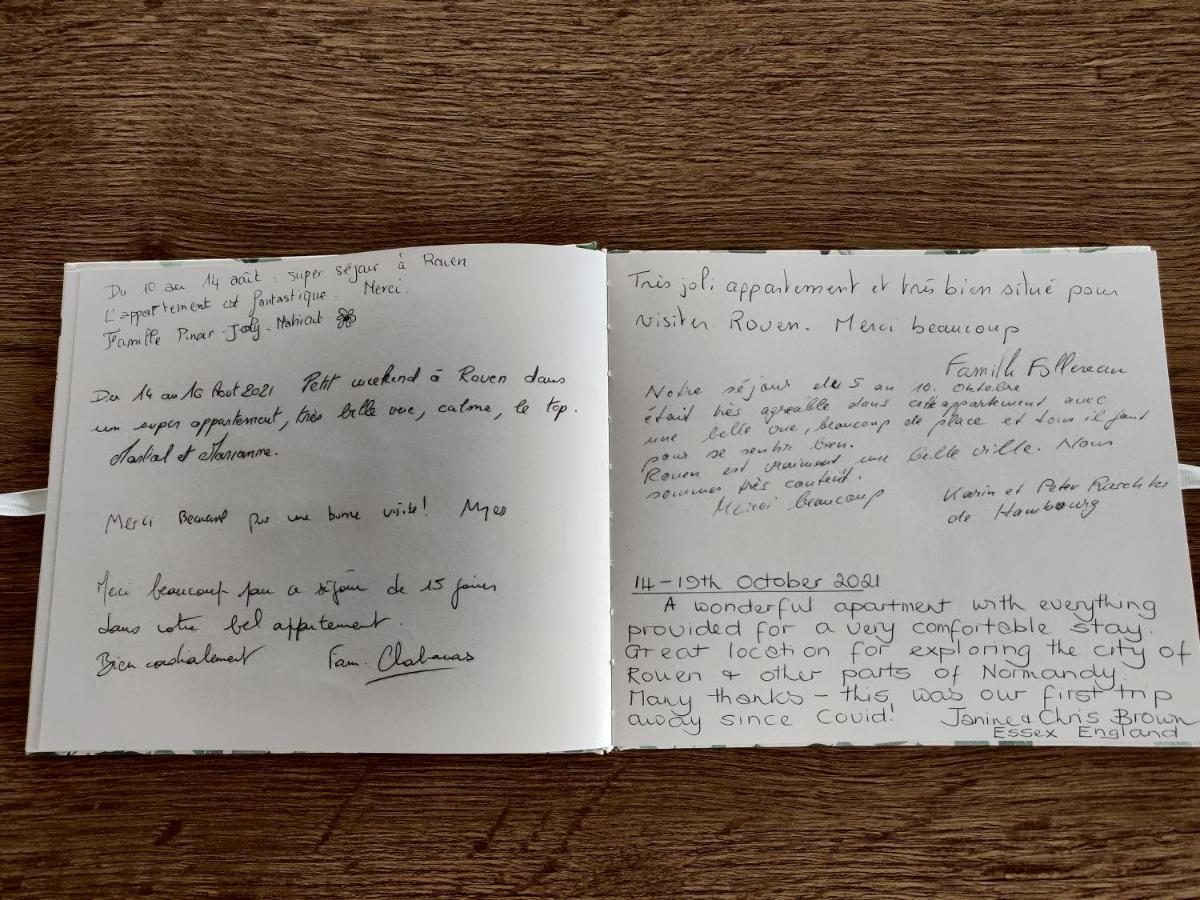 Du 10 au 14 août : super séjour à Rouen
L'appartement est fantastique. Merci.
Famille Pinar-Joly-Mahieut
Du 14 au 16 Aout 2021 Petit weekend à Rouen dans
un super appartement, très belle vue, calme, le top.
Martial et Marianne.
Merci Beaucoup pour une bonne visite!
Merci beaucoup pour ce séjour de 15 jours
dans votre bel appartement.
Bien cordialement Fam. Chabanas
Très joli appartement et très bien situé pour
visiter Rouen. Merci beaucoup
Famille Follereau
Notre séjour de 5 au 10. Octobre
était très agreable dans cette appartement avec
une belle vue, beaucoup de place et tous il faut
pour se sentir bien.
Rouen est vraiment une belle ville. Nous
sommes très content.
Merci beaucoup
Karin et Peter
de Hambourg
14-19th October 2021
A wonderful apartment with everything
provided for a very comfortable stay.
Great location for exploring the city of
Rouen & other parts of Normandy.
Many thanks - this was our first trip
away since Covid! Janine & Chris Brown
Essex England